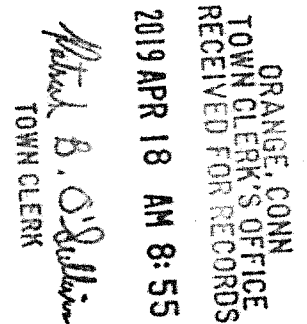 ORANGE, CONN
TOWN CLERK'S OFFICE
RECEIVED FOR RECORDS
2019 APR 18 AM 8:55
Patrick B. O'Sullivan
TOWN CLERK